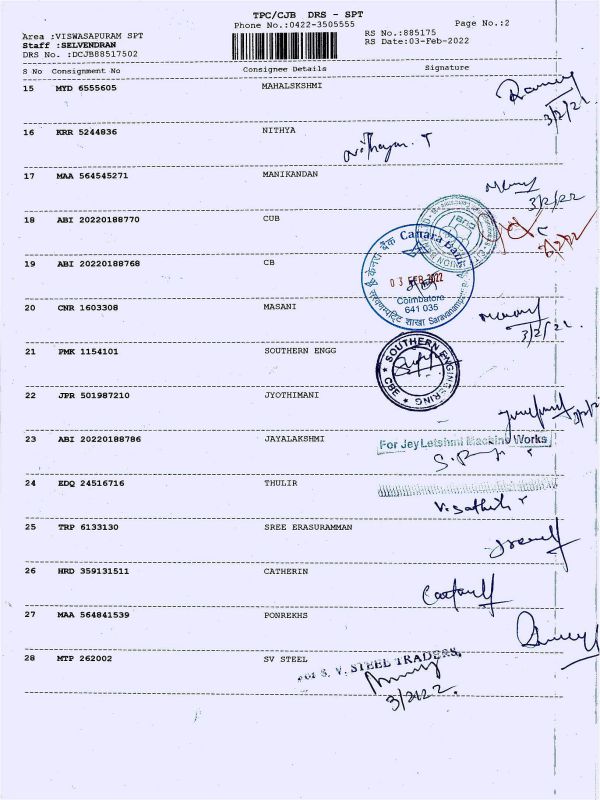 TPC/CJB DRS - SPT
Phone No.:0422-3505555
Page No.:2
Area :VISWASAPURAM SPT
Staff :SELVENDRAN
DRS No. :DCJB88517502
RS No.:885175
RS Date:03-Feb-2022
S No Consignment No Consignee Details Signature
15 MYD 6555605 MAHALSKSHMI
3/2/22
16 KRR 5244836 NITHYA
17 MAA 564545271 MANIKANDAN
3/2/22
18 ABI 20220188770 CUB
19 ABI 20220188768 CB
केनरा बैंक Canara Bank
03 FEB 2022
Coimbatore
641 035
20 CNR 1603308 MASANI
3/2/22
21 PMK 1154101 SOUTHERN ENGG
SOUTHERN ENGINEERING
CBE
22 JPR 501987210 JYOTHIMANI
23 ABI 20220188786 JAYALAKSHMI
For Jey Letshmi Machine Works
24 EDQ 24516716 THULIR
25 TRP 6133130 SREE ERASURAMMAN
26 HRD 359131511 CATHERIN
27 MAA 564841539 PONREKHS
28 MTP 262002 SV STEEL
For S. V. STEEL TRADERS,
3/2/22.